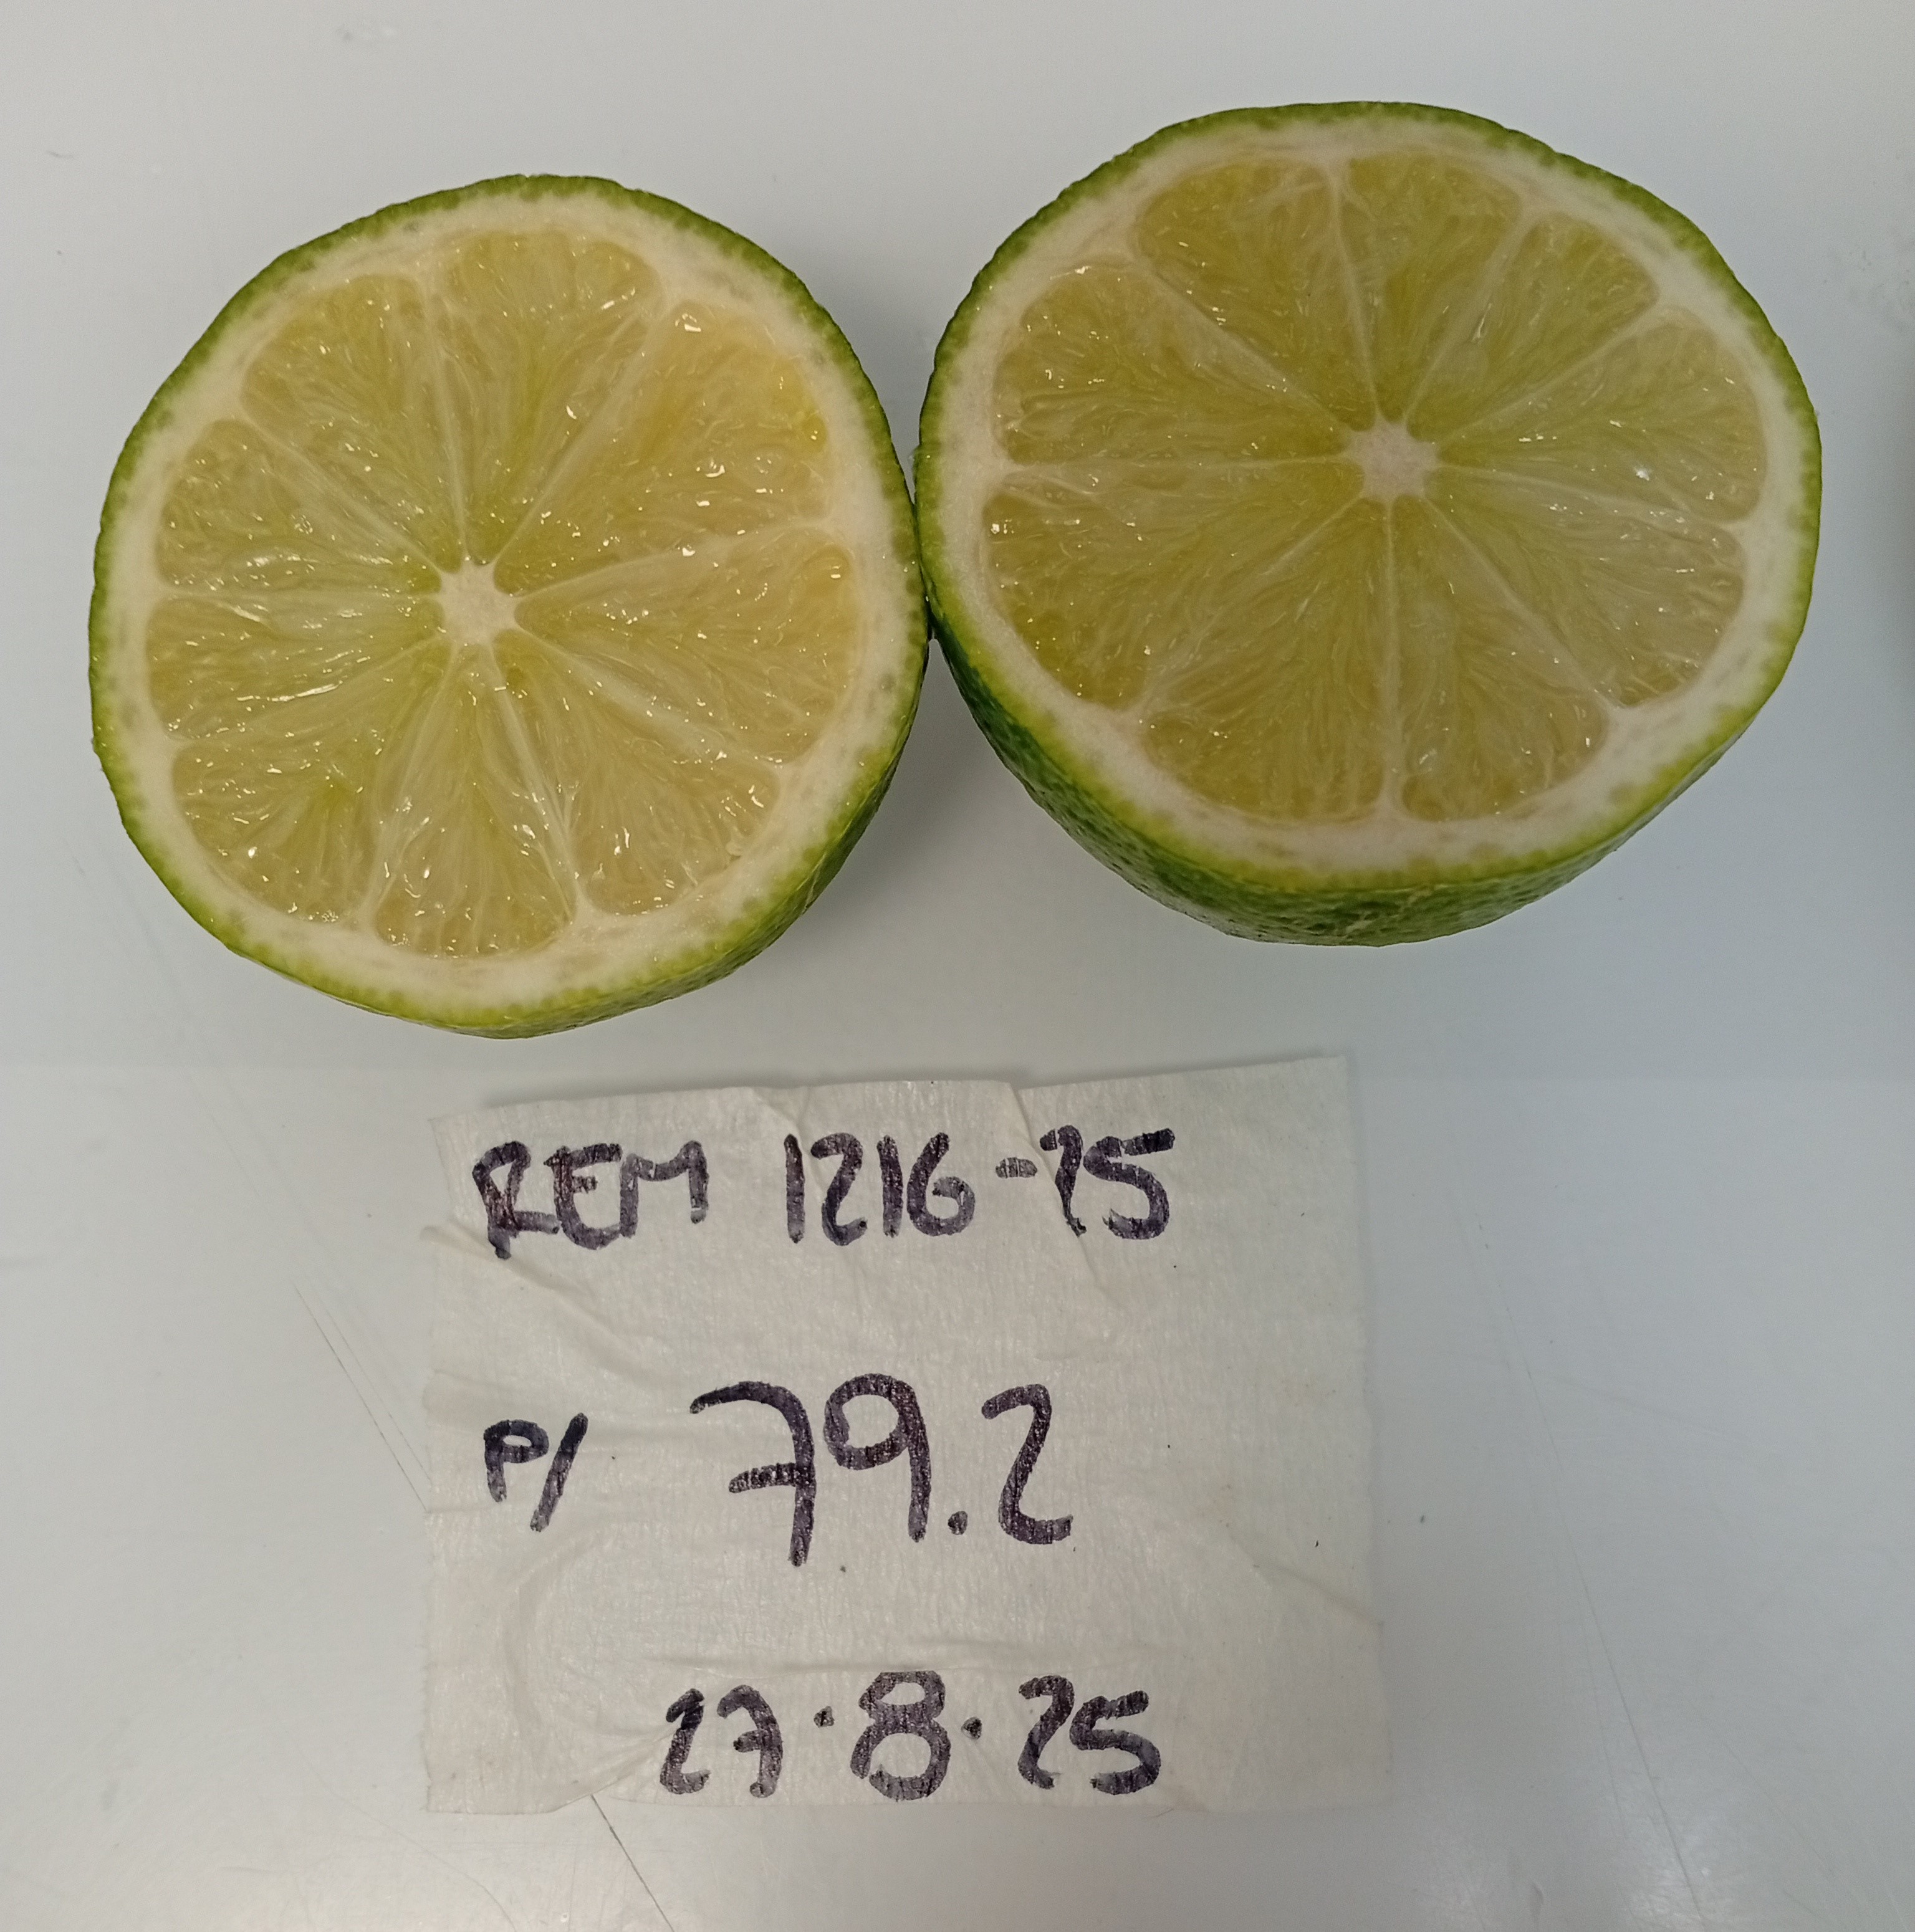 REM 1216-25
P/ 79.2
27.8.25